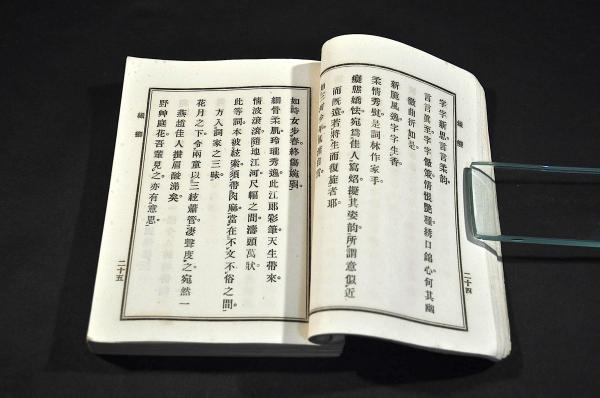 二十四
字字新思言言柔韵。
言言眞至字字情悵艷種綉口錦心何其幽
曲折如是。
新脆風逸字字生香。
柔情秀是詞林作家手。
癡態嬌怯宛爲佳人寫炤擬其姿韵所謂意似近
而旣遠若將生而復旋者耶。
如時女步春終傷婉弱。
細骨柔肌玲瓏秀逸此江郎彩筆天生帶來。
情波滾滾隨地江河尺幅之間濤頭萬狀
此等詞本被絃索須帶肉麻當在不文不俗之間。
方入詞家之三昧
花月之下令兩童以三絃簫管淒聲度之宛然一
燕趙佳人攢眉酸涕矣。
野艸庭花吾輩見之亦有意思。
二十五